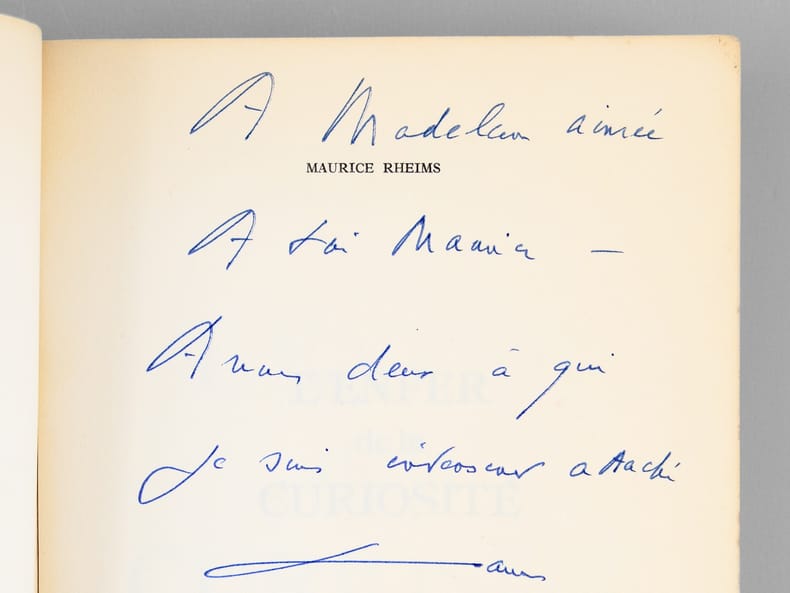 A Madeleine aimée
MAURICE RHEIMS
A toi Maurice —
A vous deux à qui
je suis attaché
L'ENFER
de la
CURIOSITÉ